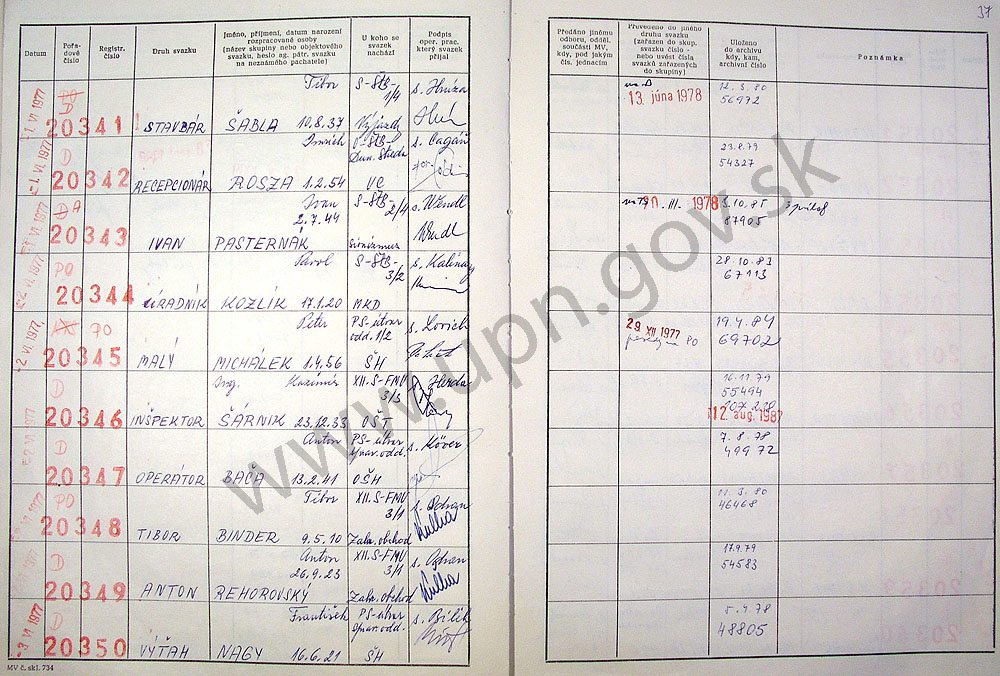 37
Datum
Pořadové číslo
Registr. číslo
Druh svazku
Jméno, příjmení, datum narození rozpracované osoby (název skupiny nebo objektového svazku, heslo ag. pátr. svazku na neznámého pachatele)
U koho se svazek nachází
Podpis oper. prac. který svazek přijal
Předáno jinému odboru, odděl. součásti MV, kdy, pod jakým čís. jednacím
Převedeno do jiného druhu svazku (zařazen do skup. svazku číslo - nebo uvést čísla svazků zařazených do skupiny)
Uloženo do archivu kdy, kam, archivní číslo
Poznámka
1. VI. 1977 D 20341 STAVBÁR Tibor ŠABLA 10.8.37 S-ŠtB- 1/4 Výjazdy s. Hruza
13. júna 1978 12.3.80 56972
1. VI. 1977 D 20342 RECEPCIONÁR ROSZA 1.2.54 Dun. Streda VC
23.8.79 54327
1. VI. 1977 DA 20343 IVAN Ivan PASTERNÁK 2.7.44 S-ŠtB- 2/4 Sionizmus
10. III. 1978 87905
VI. 1977 PO 20344 ÚRADNÍK Pavol KOZLÍK 17.1.20 S-ŠtB- 3/2 MKD s. Kalinay
28.10.83 67113
2. VI. 1977 PO 20345 MALÝ Peter MICHÁLEK 1.4.56 PS-útvar odd. 1/2 ŠH
29. XII 1977 19.4.84 69702
VI. 1977 D 20346 INŠPEKTOR Ing. Kazimír ŠÁRNIK 23.12.33 XII.S-FMV 3/3 OŠT
16.11.79 55494
12. aug. 1987
VI. 1977 D 20347 OPERÁTOR Anton BAČA 13.2.41 PS-útvar Spav. odd. OŠH s. Köver
7.8.78 49972
VI. 1977 PO 20348 TIBOR Tibor BINDER 9.5.10 XII.S-FMV 3/1 Zahr. obchod
11.3.80 46468
VI. 1977 D 20349 ANTON Anton REHOROVSKÝ 26.9.23 XII.S-FMV 3/1 Zahr. obchod
17.9.79 54583
3. VI. 1977 D 20350 VÝŤAH František NAGY 16.6.21 PS-útvar Spav. odd. ŠH s. Bilík
5.4.78 48805
MV č. skl. 734
www.upn.gov.sk